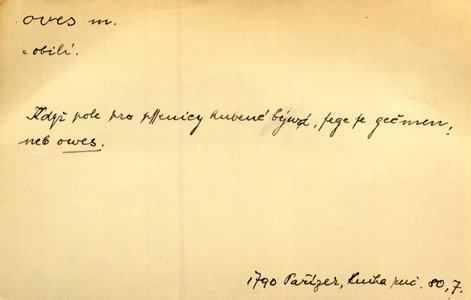 oves m.
= obilí.
Když pole pro pssenicy hubené býwá, sege se gečmen,
neb owes.
1790 Pařízek, Kniha ruč. 80, 7.